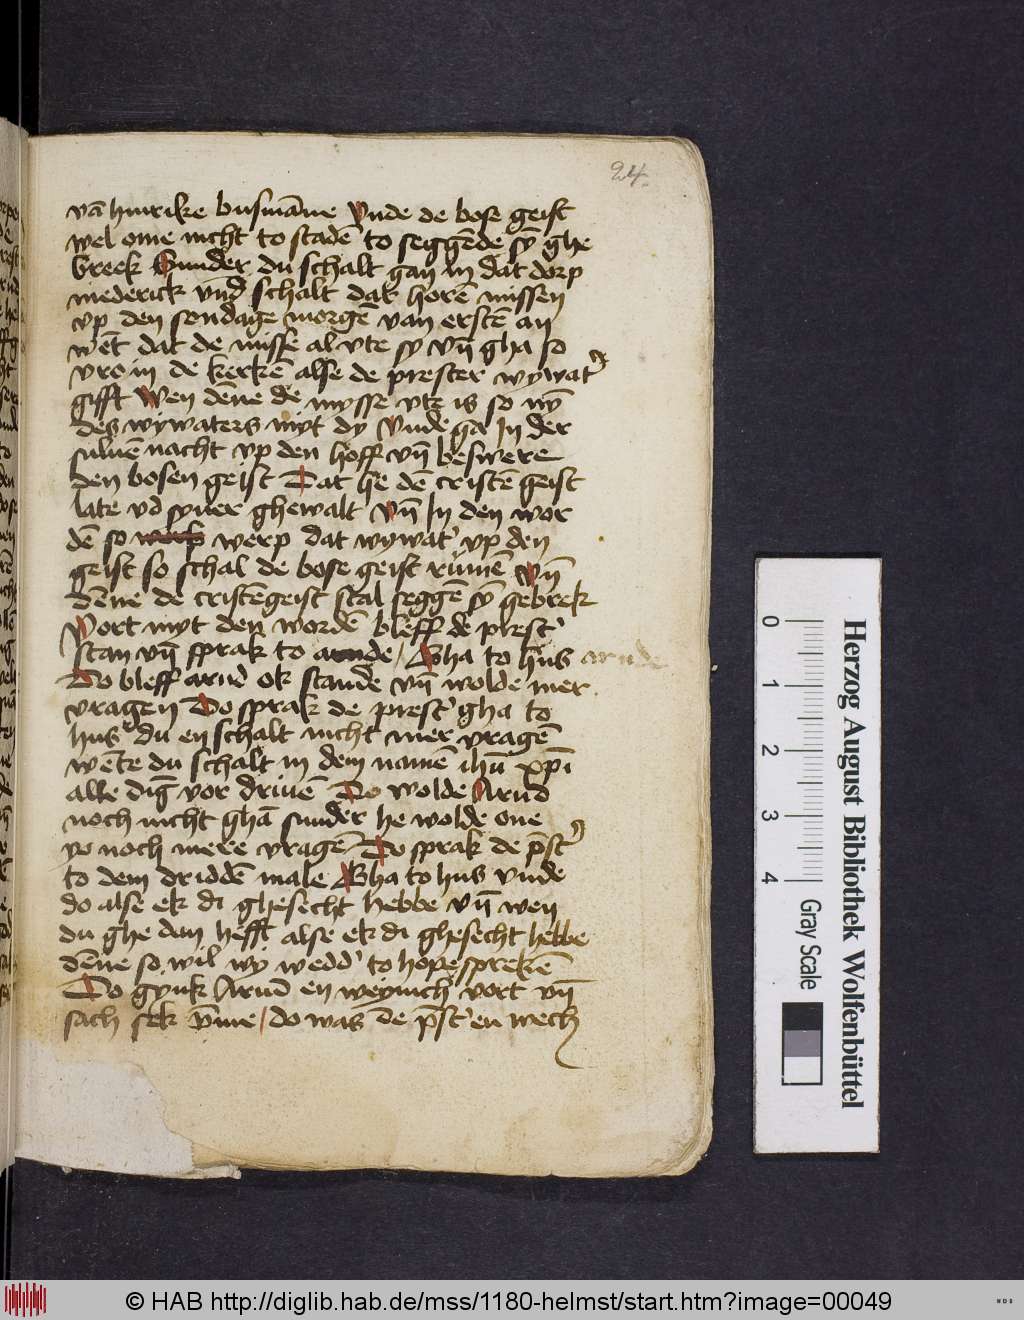 24.
vā hinrike busmāne vnde de bose geist
wel ome nicht to stadē to seggēde sȳ ghe
breck Sunder du schalt gan in dat dorp
niederick vnd schalt dar horē missen
vp den sondage morgē van erstē an
wēt dat de misse al vte sy vn̄ gha so
vro in de kerkē alse de prester wywat'
gifft Wen dēne de mysse vte is so nȳ
des wywaters myt dy vnde ga In der
suluē nacht vp den hoff vn̄ beswere
den bosen geist Dat he dē cristē geist
late vd syner ghewalt vn̄ In den wor
dē so werp dat wywat' vp den
geist so schal de bose geist rümē vn̄
dēne de cristēgeist schal seggē sȳ gebrek
Vort myt den wordē bleff de prest'
stan vn̄ sprak to arnde / Gha to hus arnde
Do bleff arnd ok stande vn̄ wolde mer
vragen Do sprak de prest' gha to
hus du en schalt nicht mer vragē
wēte du schalt in dem namē ihū xp̄i
alle dīg vor driuē Do wolde Arnd
noch nicht ghā sunder he wolde one
yo noch mere vragē Do sprak de p̄st'
to dem driddē male Gha to hus vnde
do alse ek di ghesecht hebbe vn̄ wen
du ghe dan hefft alse ek di ghesecht hebbe
dēne so wil wy wedd' to hope sprekē
Do gynk Arnd en weynich vort vn̄
sach sek v̄me / do was de p̄st' en wech
Herzog August Bibliothek Wolfenbüttel
0 1 2 3 4
Gray Scale
© HAB http://diglib.hab.de/mss/1180-helmst/start.htm?image=00049